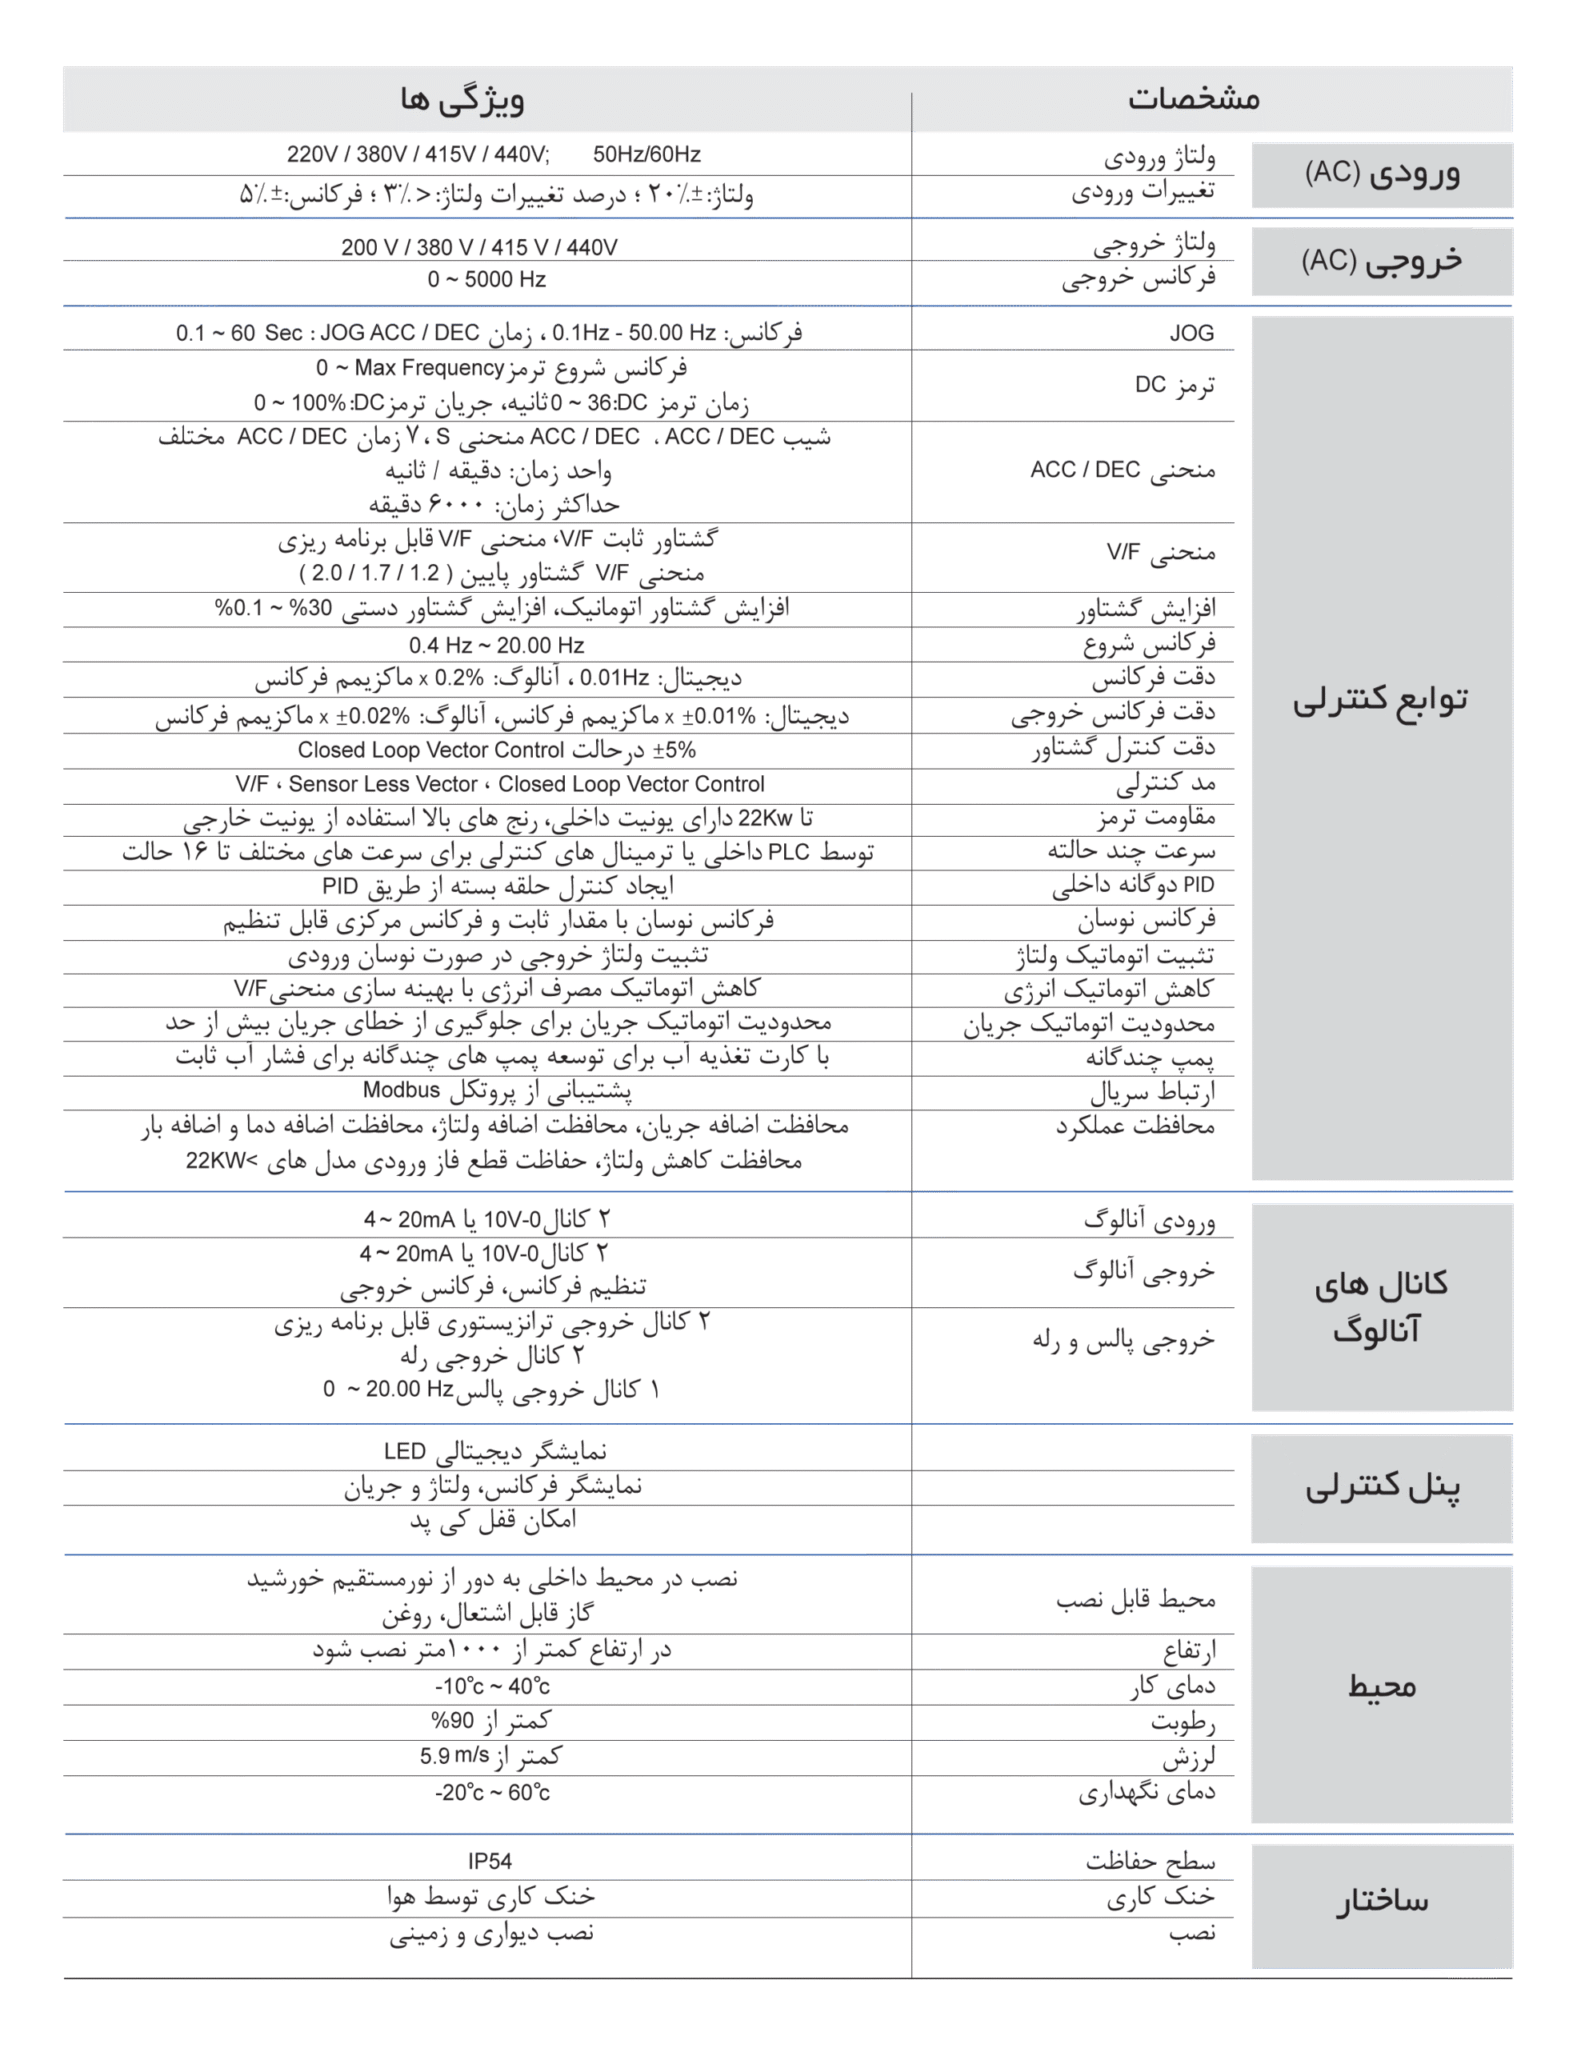 مشخصات
ویژگی ها
ورودی (AC)
ولتاژ ورودی
220V / 380V / 415V / 440V; 50Hz/60Hz
تغییرات ورودی
ولتاژ:±٪۲۰ ؛ درصد تغییرات ولتاژ:<٪۳ ؛ فرکانس:±٪۵
خروجی (AC)
ولتاژ خروجی
200 V / 380 V / 415 V / 440V
فرکانس خروجی
0 ~ 5000 Hz
توابع کنترلی
JOG
فرکانس: 0.1Hz - 50.00 Hz ، زمان JOG ACC / DEC : 0.1 ~ 60 Sec
ترمز DC
فرکانس شروع ترمز 0 ~ Max Frequency
زمان ترمز DC:‏36 ~ 0ثانیه، جریان ترمزDC:‏0 ~ 100%
منحنی ACC / DEC
شیب ACC / DEC ، ACC / DEC منحنی S ،۷ زمان ACC / DEC مختلف
واحد زمان: دقیقه / ثانیه
حداکثر زمان: ۶۰۰۰ دقیقه
منحنی V/F
گشتاور ثابت V/F، منحنی V/F قابل برنامه ریزی
منحنی V/F گشتاور پایین ( 1.2 / 1.7 / 2.0 )
افزایش گشتاور
افزایش گشتاور اتومانیک، افزایش گشتاور دستی 30% ~ 0.1%
فرکانس شروع
0.4 Hz ~ 20.00 Hz
دقت فرکانس
دیجیتال: 0.01Hz ، آنالوگ: 0.2% x ماکزیمم فرکانس
دقت فرکانس خروجی
دیجیتال: ±0.01% x ماکزیمم فرکانس، آنالوگ: ±0.02% x ماکزیمم فرکانس
دقت کنترل گشتاور
±5% درحالت Closed Loop Vector Control
مد کنترلی
V/F ، Sensor Less Vector ، Closed Loop Vector Control
مقاومت ترمز
تا 22Kw دارای یونیت داخلی، رنج های بالا استفاده از یونیت خارجی
سرعت چند حالته
توسط PLC داخلی یا ترمینال های کنترلی برای سرعت های مختلف تا ۱۶ حالت
PID دوگانه داخلی
ایجاد کنترل حلقه بسته از طریق PID
فرکانس نوسان
فرکانس نوسان با مقدار ثابت و فرکانس مرکزی قابل تنظیم
تثبیت اتوماتیک ولتاژ
تثبیت ولتاژ خروجی در صورت نوسان ورودی
کاهش اتوماتیک انرژی
کاهش اتوماتیک مصرف انرژی با بهینه سازی منحنیV/F
محدودیت اتوماتیک جریان
محدودیت اتوماتیک جریان برای جلوگیری از خطای جریان بیش از حد
پمپ چندگانه
با کارت تغذیه آب برای توسعه پمپ های چندگانه برای فشار آب ثابت
ارتباط سریال
پشتیبانی از پروتکل Modbus
محافظت عملکرد
محافظت اضافه جریان، محافظت اضافه ولتاژ، محافظت اضافه دما و اضافه بار
محافظت کاهش ولتاژ، حفاظت قطع فاز ورودی مدل های >22KW
کانال های
آنالوگ
ورودی آنالوگ
۲ کانال10V-0 یا 4 ~ 20mA
خروجی آنالوگ
۲ کانال10V-0 یا 4 ~ 20mA
تنظیم فرکانس، فرکانس خروجی
خروجی پالس و رله
۲ کانال خروجی ترانزیستوری قابل برنامه ریزی
۲ کانال خروجی رله
۱ کانال خروجی پالس 0 ~ 20.00 Hz
پنل کنترلی
نمایشگر دیجیتالی LED
نمایشگر فرکانس، ولتاژ و جریان
امکان قفل کی پد
محیط
محیط قابل نصب
نصب در محیط داخلی به دور از نورمستقیم خورشید
گاز قابل اشتعال، روغن
ارتفاع
در ارتفاع کمتر از ۱۰۰۰متر نصب شود
دمای کار
-10°c ~ 40°c
رطوبت
کمتر از 90%
لرزش
کمتر از 5.9 m/s
دمای نگهداری
-20°c ~ 60°c
ساختار
سطح حفاظت
IP54
خنک کاری
خنک کاری توسط هوا
نصب
نصب دیواری و زمینی